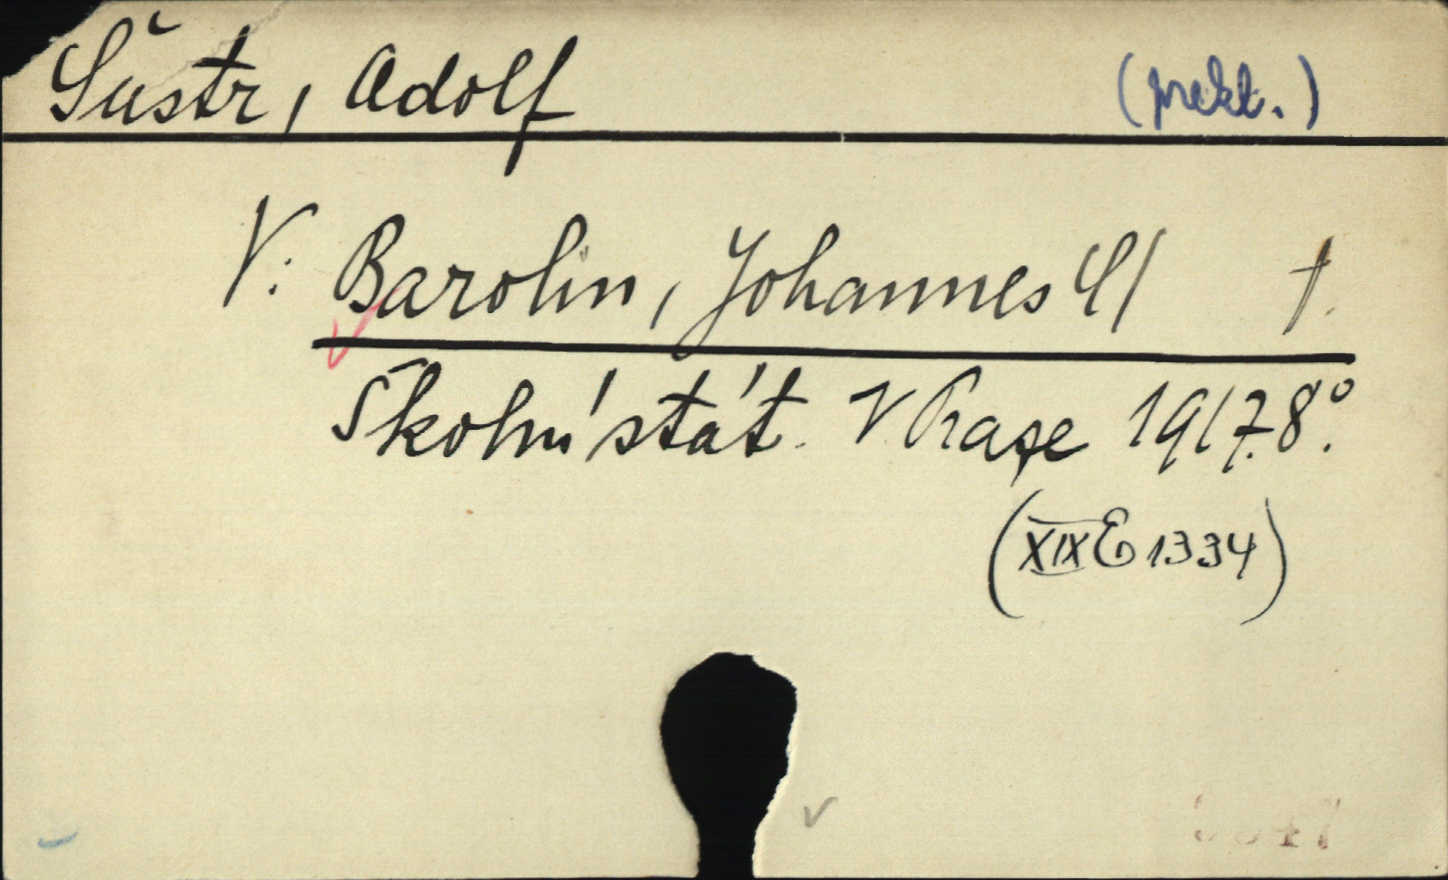 Šustr, Adolf (překl.)
V: Barolin, Johannes C/ †.
Školní stát. V Praze 1917. 8°.
(XIX E 1334)